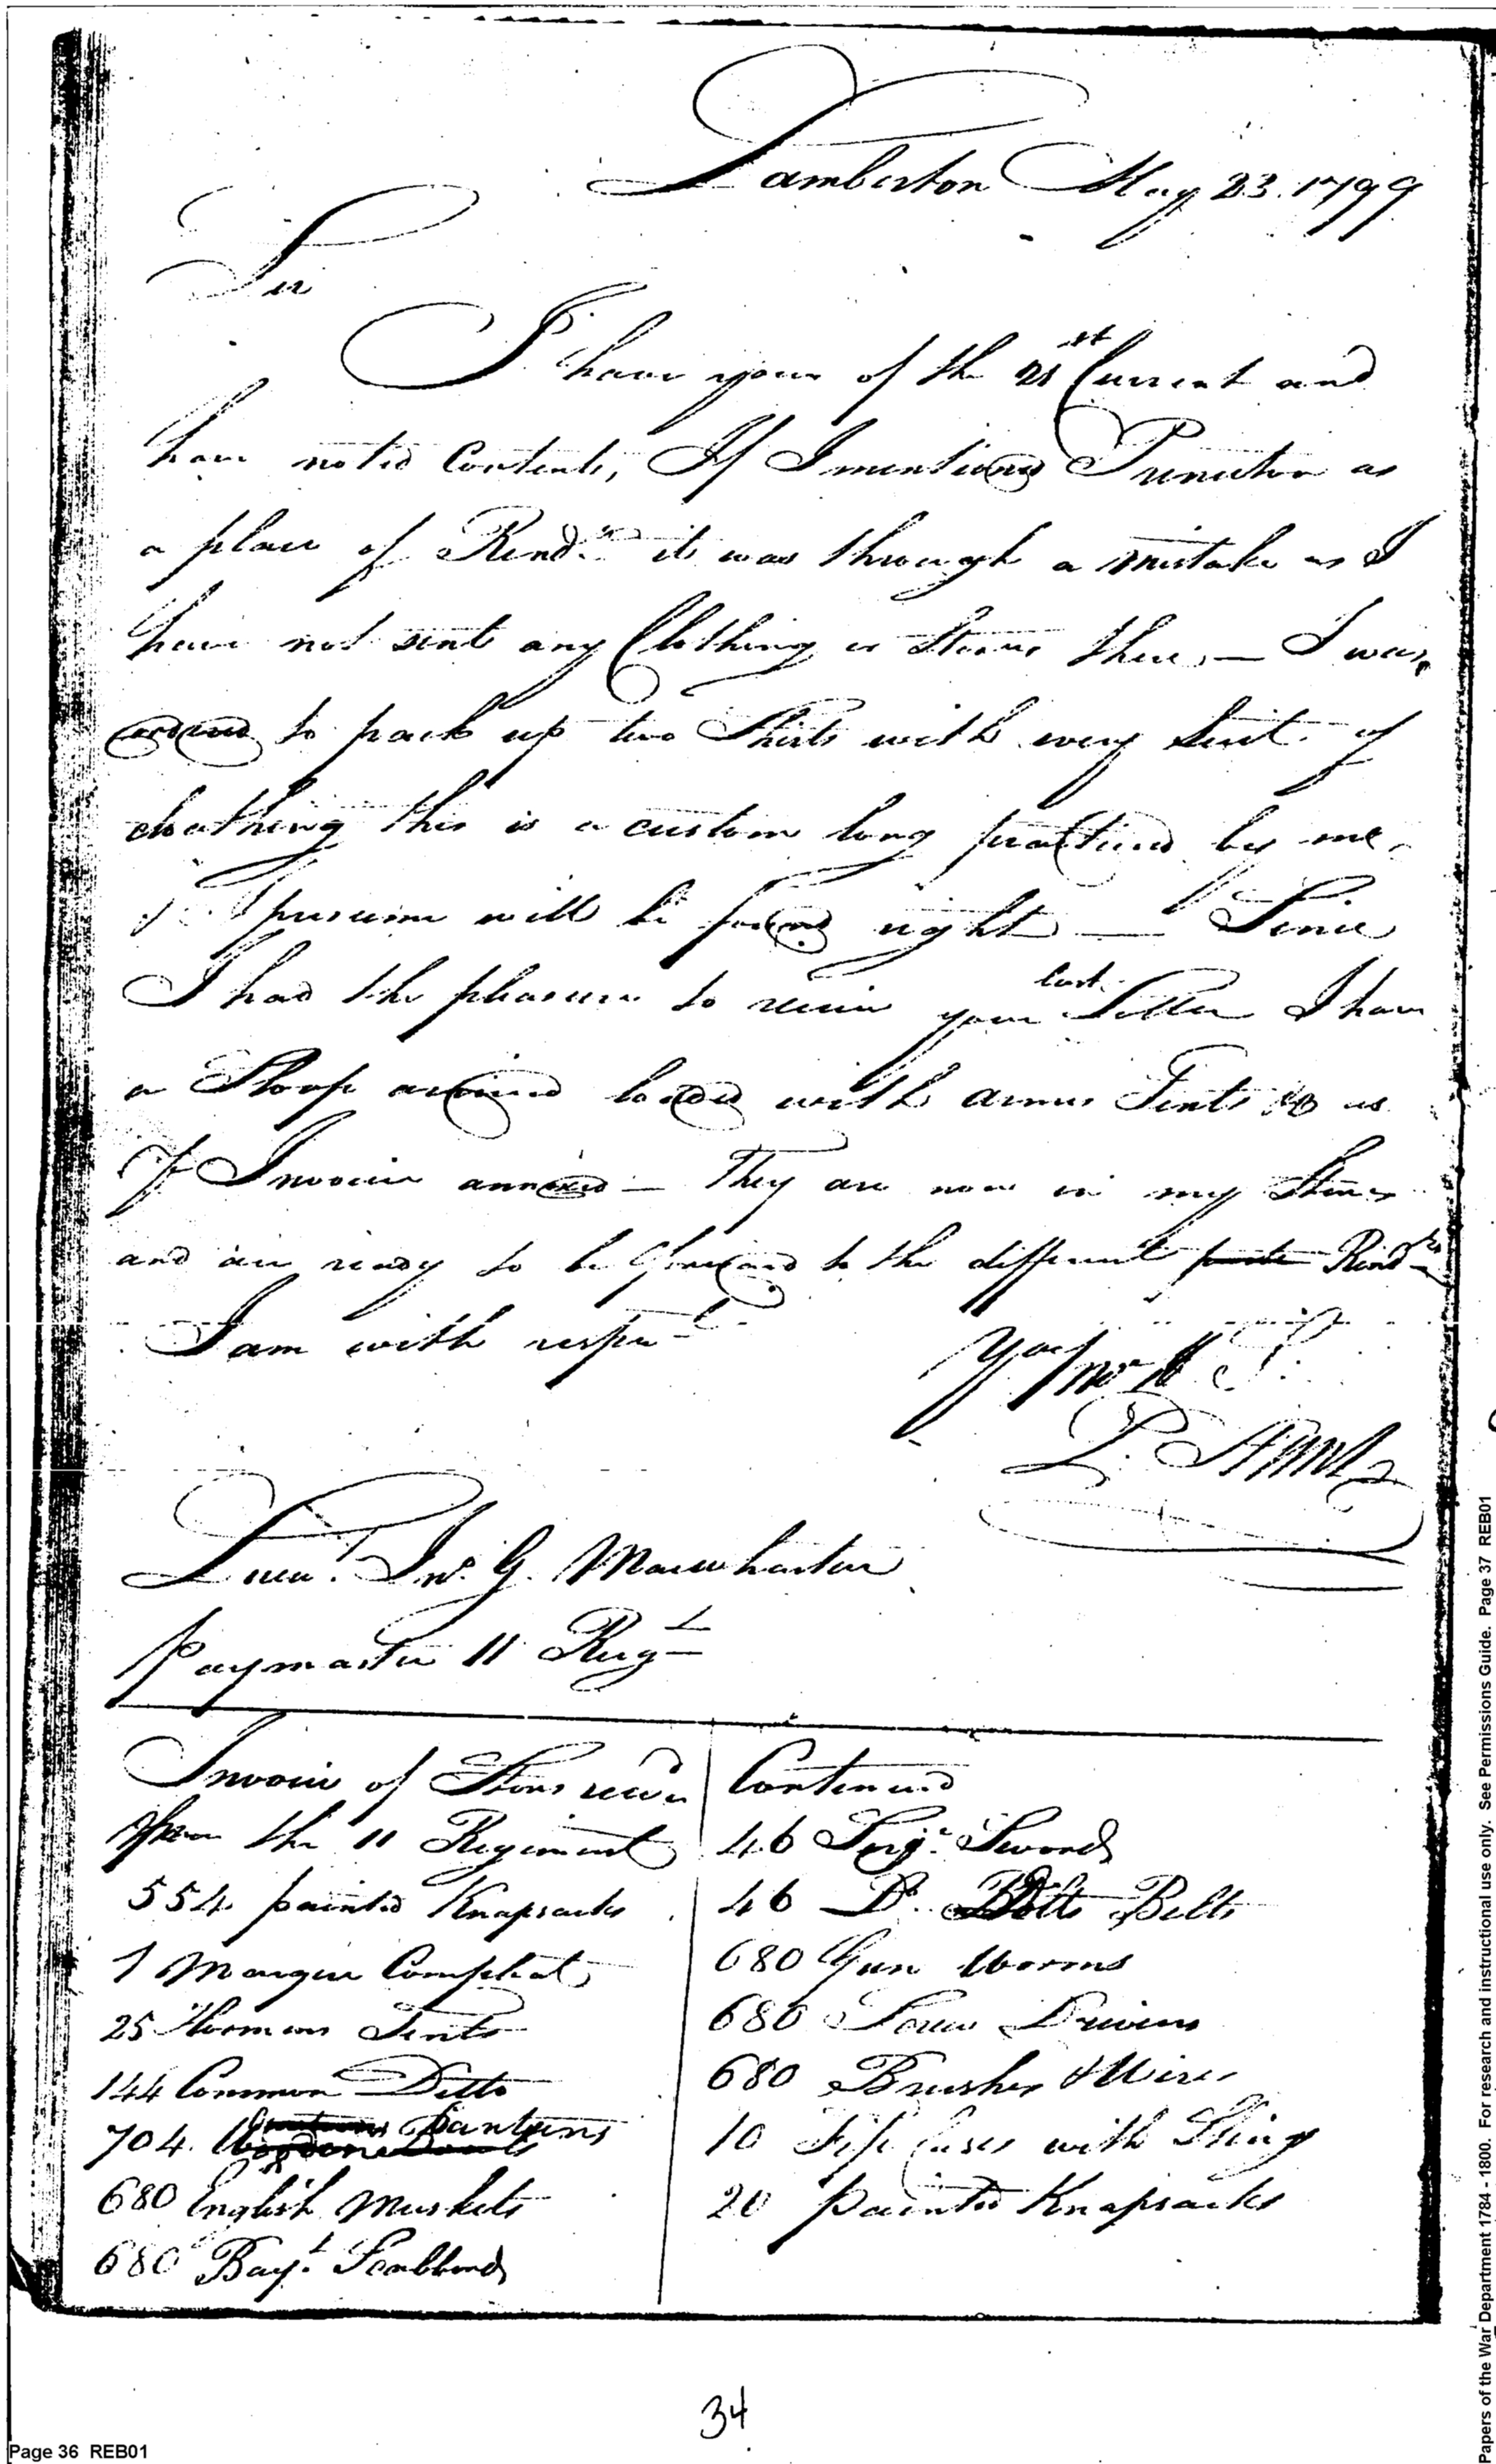 Lamberton May 23. 1799
Sir
I have your of the 21st Current and
have noted Contents, If I mentioned Princeton as
a place of Rendzs it was through a mistake as I
have not sent any Clothing or Stores there, — I was
ordered to pack up two Shirts with every Suit of
cloathing this is a custom long practiced by me,
I presume will be found right — Since
I had the pleasure to receive your last Letter I have
a Sloop arrived loaded with arms Tents &c as
Pr Invoice annexed — They are now in my Stores
and are ready to be forward to the different Rendzs
I am with respect
Your most H S.
P. Hunt
Lieut. Jno. G. Macwhorter
Paymaster 11 Regt
Invoice of Stores recd
for the 11 Regiment
554 painted Knapsacks
1 Marquee Compleat
25 Horsmans Tents
144 Common Ditto
704 Canteens
680 English Muskets
680 Bayt. Scabbords
Continued
46 Serjt. Swords
46 Do. Belts
680 Gun Worms
680 Screw Drivers
680 Brushes & Wires
10 Fife Cases with Sling
20 painted Knapsacks
34
Page 36 REB01
Papers of the War Department 1784 - 1800. For research and instructional use only. See Permissions Guide. Page 37 REB01